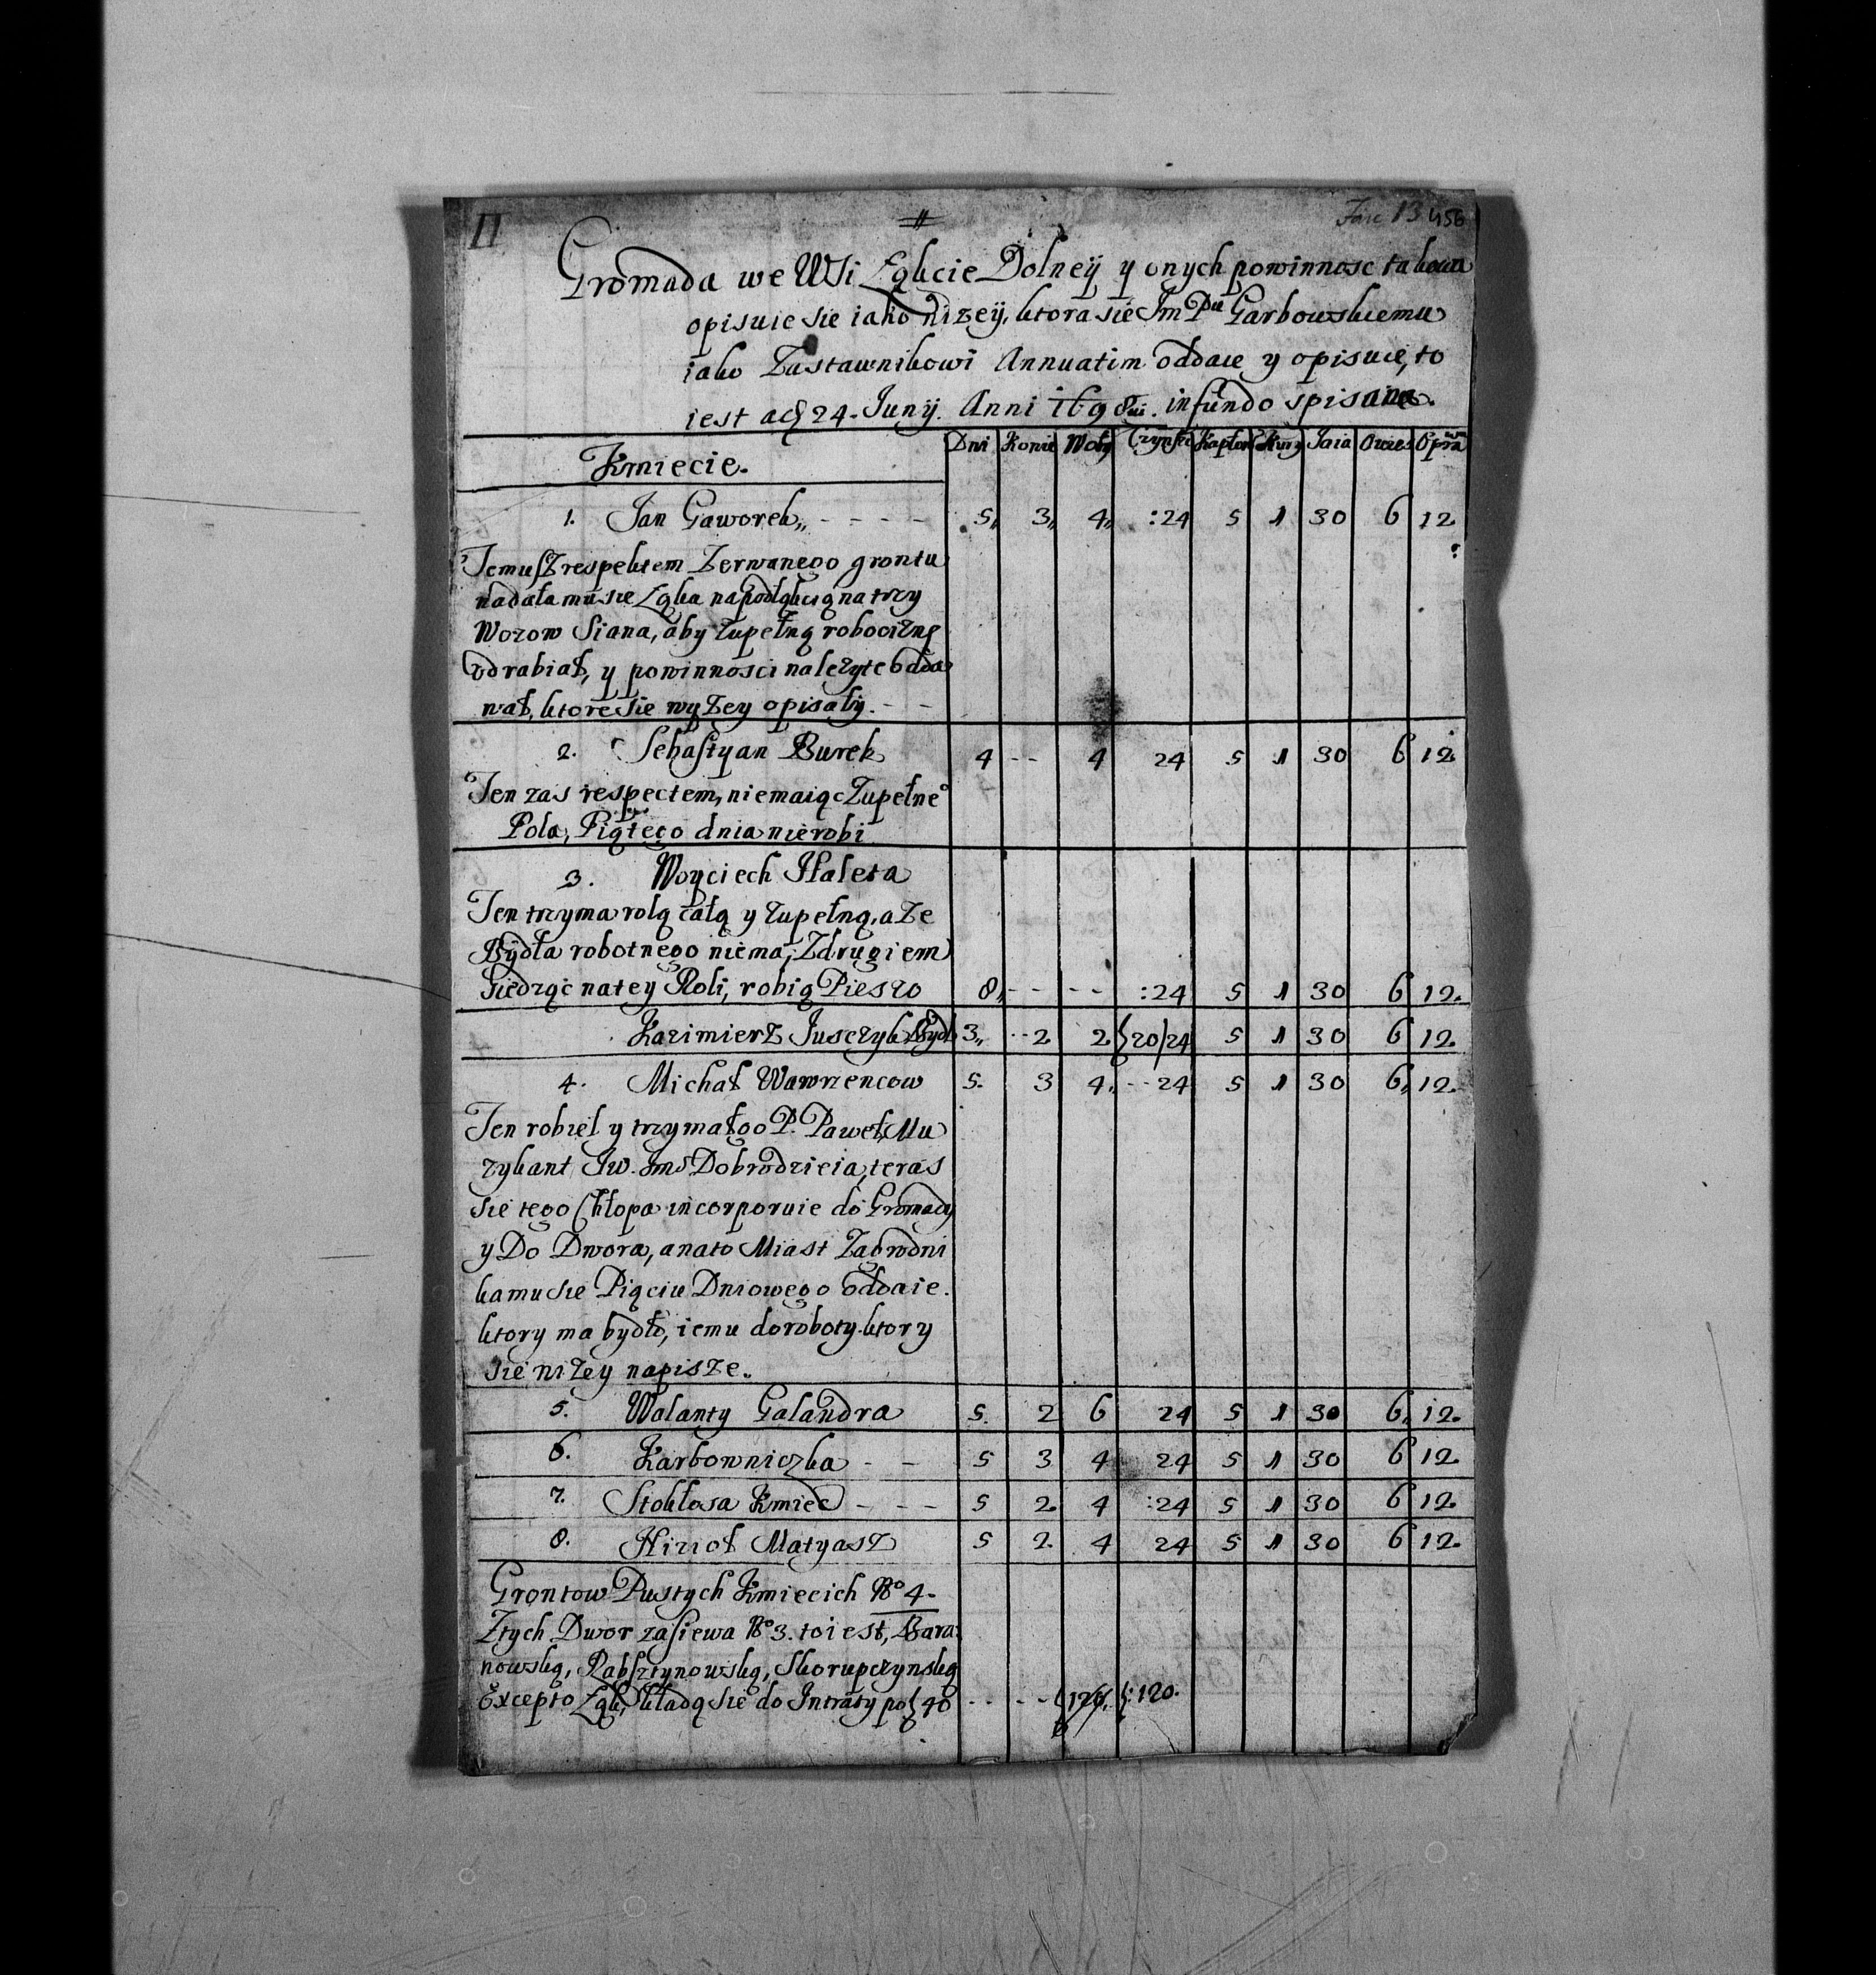 II
Fasc 13 456
Gromada we Wsi Łękcie Dolneÿ y onych powinnosc takowa
opisuie sie iako nizeÿ, ktora sie Jm Pu Garbowskiemu
iako Zastawnikowi Annuatim oddaie y opisuie, to
iest ad 24. Junÿ. Anni 169 in fundo spisana.
Kmiecie. Dni Konie Woły Czynsz Kapłon Kury Jaia Owies Opra
1. Jan Gaworek,, - - - - 5,, 3,, 4,, :24 5 1 30 6 12.
Temusz respektem Zerwanego grontu
nadała mu sie Łąka na Podłąkcią na trzy
Wozow Siana, aby zupełną robociznę
odrabiał, y powinnosci nalezyte odda
wał, ktore sie wyzey opisały. - -
2. Sebastyan Burek 4 - - 4 24 5 1 30 6 12
Ten zas respectem, nie maiąc Zupełneo
Pola, Piątego dnia nie robi
3. Woyciech Haleta
Ten trzyma rolą całą y zupełną, a ze
Bÿdła robotnego nie ma, Z drugiem
siedząc na tey Roli, robią Pieszo 8,, - - - - :24 5 1 30 6 12.
Kazimierz Jusczyk Bydl 3,, - - 2 2 20/24 5 1 30 6 12.
4. Michał Wawrzencow 5. 3 4,, - - 24 5 1 30 6,, 12.
Ten robieł y trzymał go P. Paweł Mu
zykant Jw. Jms Dobrodzieia, teras
sie tego Chłopa incorporuie do Gromady
y Do Dwora, a nato Miast Zagrodni
ka mu sie Piąciu Dniowego oddaie.
ktory ma bydło, iemu do roboty. ktory
sie nizey napisze.
5. Walanty Galandra 5. 2 6 24 5 1 30 6,, 12.
6. Karbowniczka - - 5 3 4 24 5 1 30 6 12.
7. Stokłosa Kmiec - - - 5 2 4 :24 5 1 30 6 12.
8. Hizioł Matyasz 5 2 4 24 5 1 30 6 12.
Grontow Pustych Kmiecich No 4-
Z tych Dwor zasiewa No 3. to iest, Bara:
nowską, Rabsztynowską, Skorupczynską
Excepto Łąk, składą sie do Intraty po 40 - - - - 120. :120.